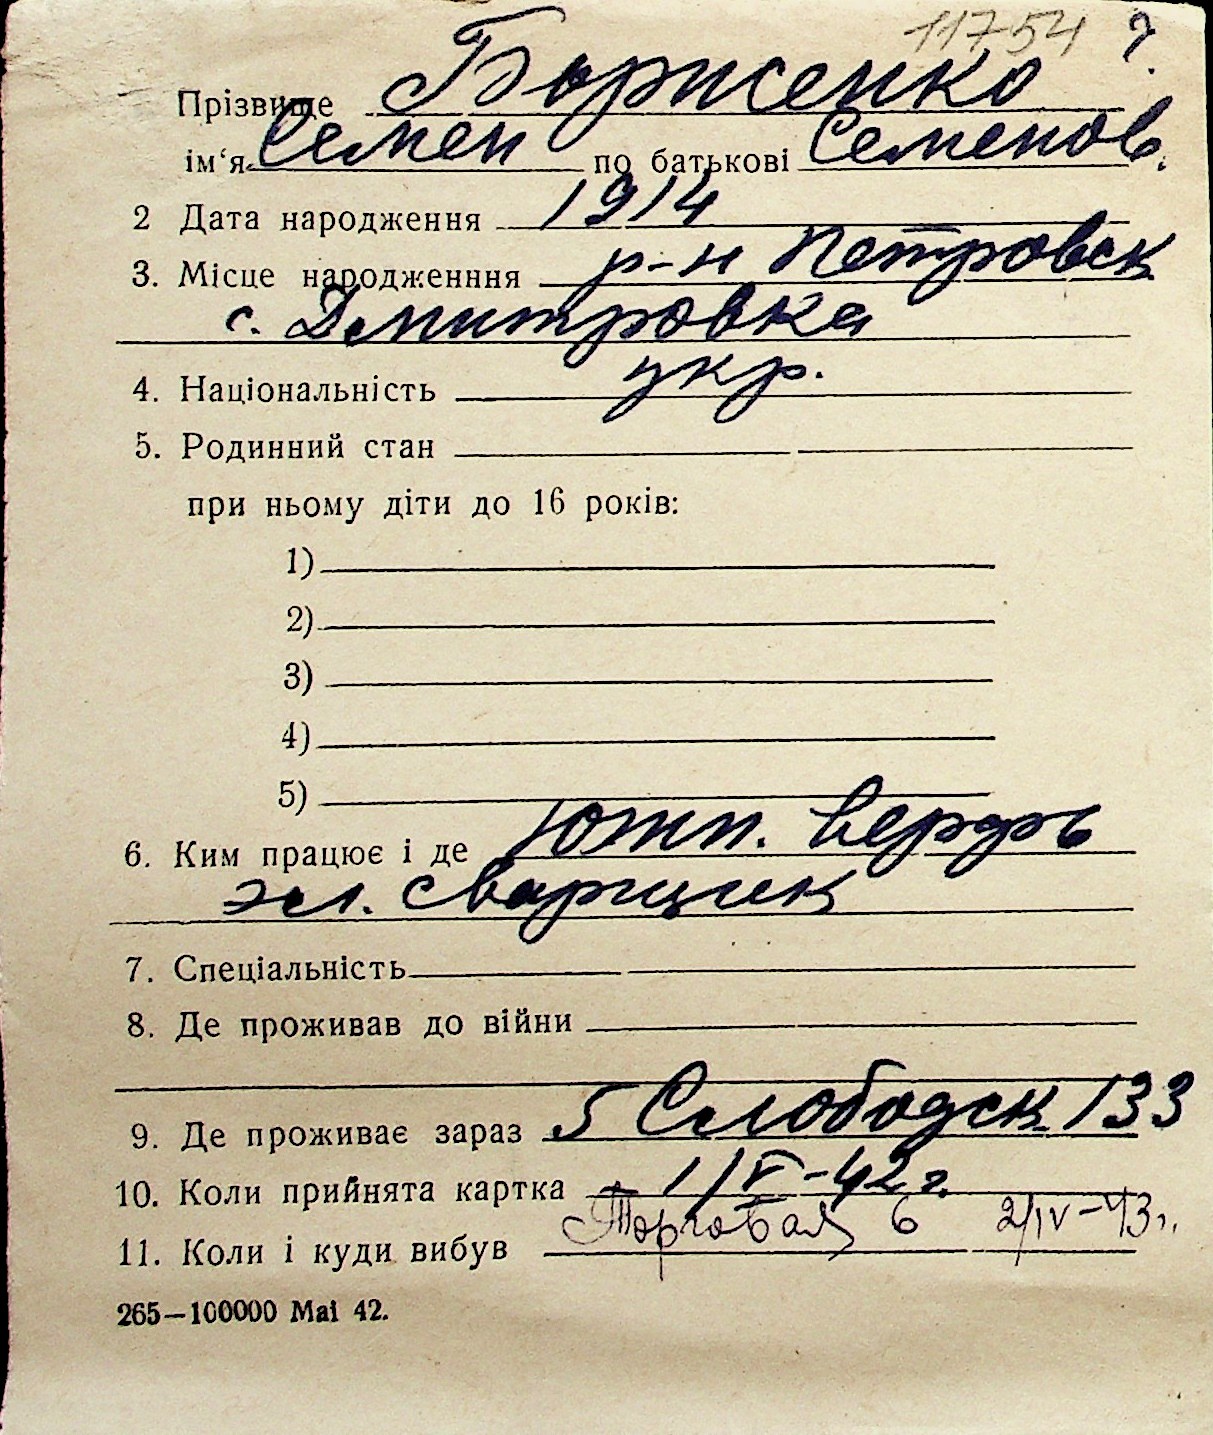 11754 ?
Прізвище Борисенко
ім‘я Семен по батькові Семенов.
2 Дата народження 1914
3. Місце народженння р-н Петровск
с. Дмитровка
4. Національність укр.
5. Родинний стан
при ньому діти до 16 років:
1)
2)
3)
4)
5)
6. Ким працює і де Южн. верфь
эл. сварщик
7. Спеціальність
8. Де проживав до війни
9. Де проживає зараз 5 Слободск 133
10. Коли прийнята картка 1/V-42г.
11. Коли і куди вибув Торговая 6 2/IV-43г.
265—100000 Mai 42.